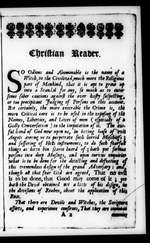 Christian Reader.
SO Odious and Abominable is the name of a
Witch, to the Civilized, much more the Religious
part of Mankind, that it is apt to grow up
into a Scandal for any, so much as to enter
some sober cautions against the over hasty suspecting,
or too precipitant Judging of Persons on this account.
But certainly, the more execrable the Crime is, the
more Critical care is to be used in the exposing of the
Names, Liberties, and Lives of men (especially of a
Godly Conversation) to the imputation of it. The
hand of God now upon us, in letting loose of Evil
Angels among us to perpetrate such horrid Mischiefs,
and suffering of Hell's instruments, to do such fearful
things as have been scarce heard of; hath put serious
persons into deep Musings, and upon curious enquiries
what is to be done for the detecting and defeating of
this tremendous design of the grand Adversary: And,
though all that fear God are agreed, That no evil
is to be done, that Good may come of it;
hath the Devil obtained not a little of his design, by
the divisions of Reuben, about the application of this
Rule.
That there are Devils and Witches, the Scripture
asserts, and experience confirms, That they are common
A 2